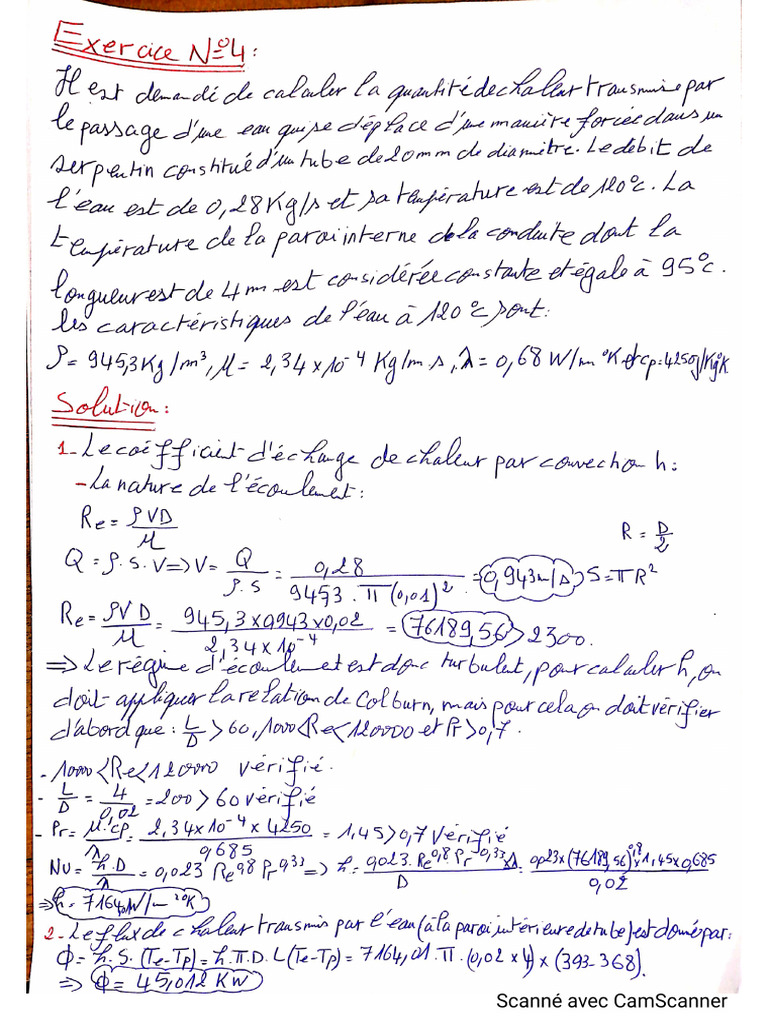 Exercice N°4:
Il est demandé de calculer la quantité de chaleur transmise par
le passage d'une eau qui se déplace d'une manière forcée dans un
serpentin constitué d'un tube de 20mm de diamètre. Le débit de
l'eau est de 0,28Kg/s et sa température est de 120°c. La
température de la paroi interne de la conduite dont la
longueur est de 4m est considérée constante et égale à 95°c.
les caractéristiques de l'eau à 120°c sont:
ρ = 945,3Kg/m³, μ = 2,34x10⁻⁴ Kg/m.s, λ = 0,68 W/m °K et cp=4250g/Kg°K
Solution:
1- Le coéfficient d'échange de chaleur par convection h:
- La nature de l'écoulement:
Re = ρVD/μ
R = D/2
Q = ρ.S.V => V = Q/ρ.S = 0,28/945,3.π(0,01)² = 0,943m/s S=πR²
Re = ρVD/μ = 945,3x0,943x0,02/2,34x10⁻⁴ = 76189,56 > 2300.
=> Le régime d'écoulement est donc turbulent, pour calculer h, on
doit appliquer la relation de Colburn, mais pour cela on doit vérifier
d'abord que: L/D > 60, 10000<Re<120000 et Pr>0,7.
- 10000<Re<120000 vérifié.
- L/D = 4/0,02 = 200 > 60 vérifié
- Pr = μ.cp/λ = 2,34x10⁻⁴ x 4250/0,685 = 1,45 > 0,7 Vérifié
Nu = h.D/λ = 0,023 Re^0,8 Pr^0,33 => h = 0,023.Re^0,8 Pr^0,33.λ/D = 0,023x(76189,56)^0,8x1,45x0,685/0,02
=> h = 7164,01W/m²°K
2- Le flux de chaleur transmis par l'eau (à la paroi intérieure de tube) est donné par:
Φ = h.S.(Te-Tp) = h.π.D.L(Te-Tp) = 7164,01.π.(0,02x4)x(393-368).
=> Φ = 45,012 KW
Scanné avec CamScanner